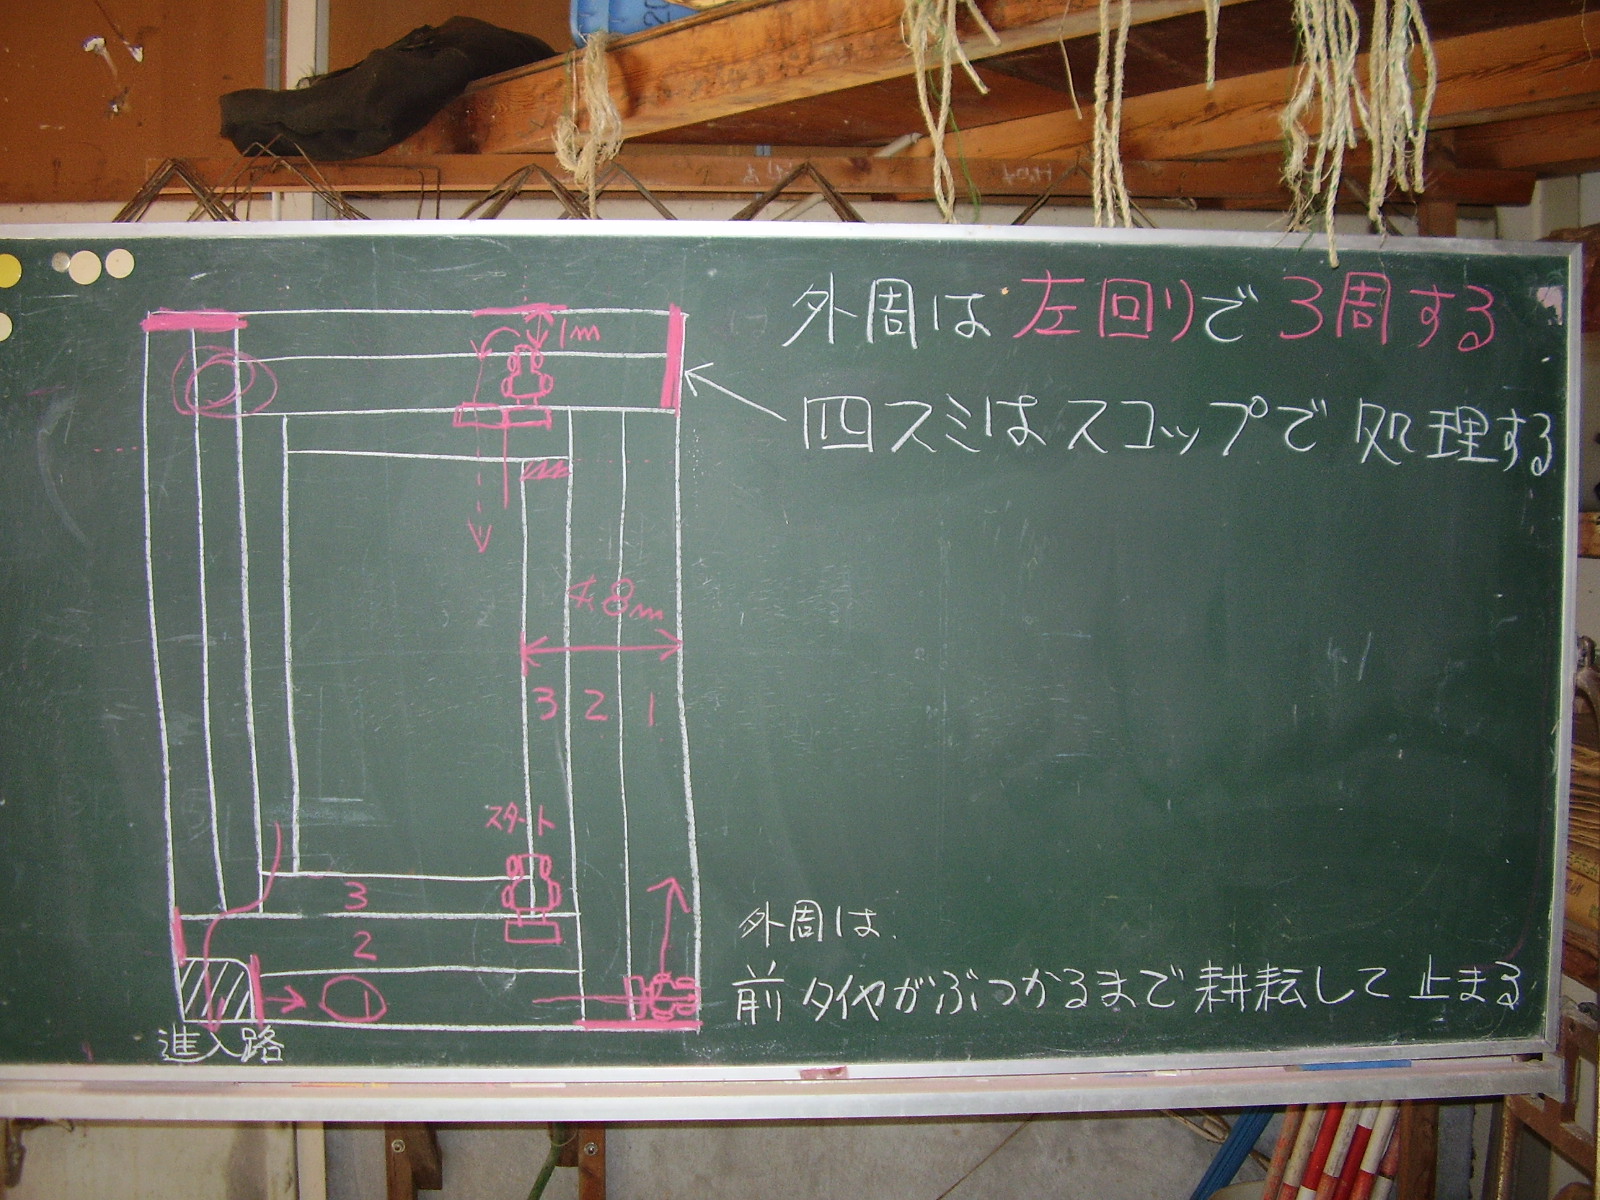 外周は左回りで3周する
四スミはスコップで処理する
1m
8m
3 2 1
スタート
3
2
1
進入路
外周は、
前タイヤがぶつかるまで耕耘して止まる